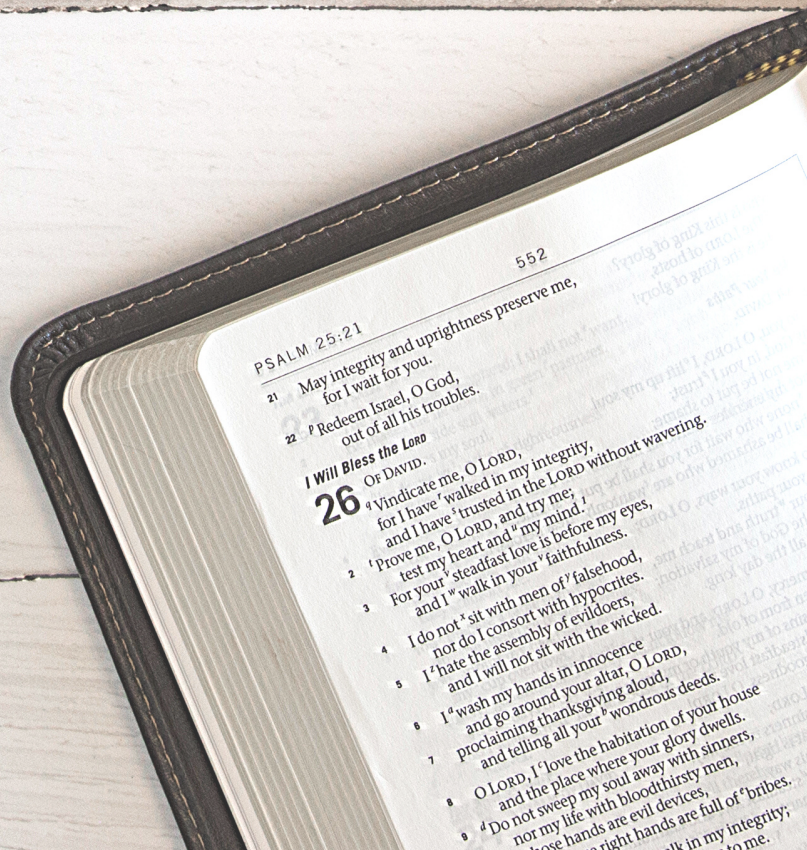 552
PSALM 25:21
21 May integrity and uprightness preserve me,
for I wait for you.
22 p Redeem Israel, O God,
out of all his troubles.
I Will Bless the LORD
26 OF DAVID.
q Vindicate me, O LORD,
for I have r walked in my integrity,
and I have s trusted in the LORD without wavering.
2 t Prove me, O LORD, and try me;
test my heart and u my mind.
3 For your v steadfast love is before my eyes,
and I w walk in your v faithfulness.
4 I do not x sit with men of y falsehood,
nor do I consort with hypocrites.
5 I z hate the assembly of evildoers,
and I will not sit with the wicked.
6 I a wash my hands in innocence
and go around your altar, O LORD,
7 proclaiming thanksgiving aloud,
and telling all your b wondrous deeds.
8 O LORD, I c love the habitation of your house
and the place where your glory dwells.
9 d Do not sweep my soul away with sinners,
nor my life with bloodthirsty men,
hands are evil devices,
right hands are full of e bribes.
in my integrity;
to me.